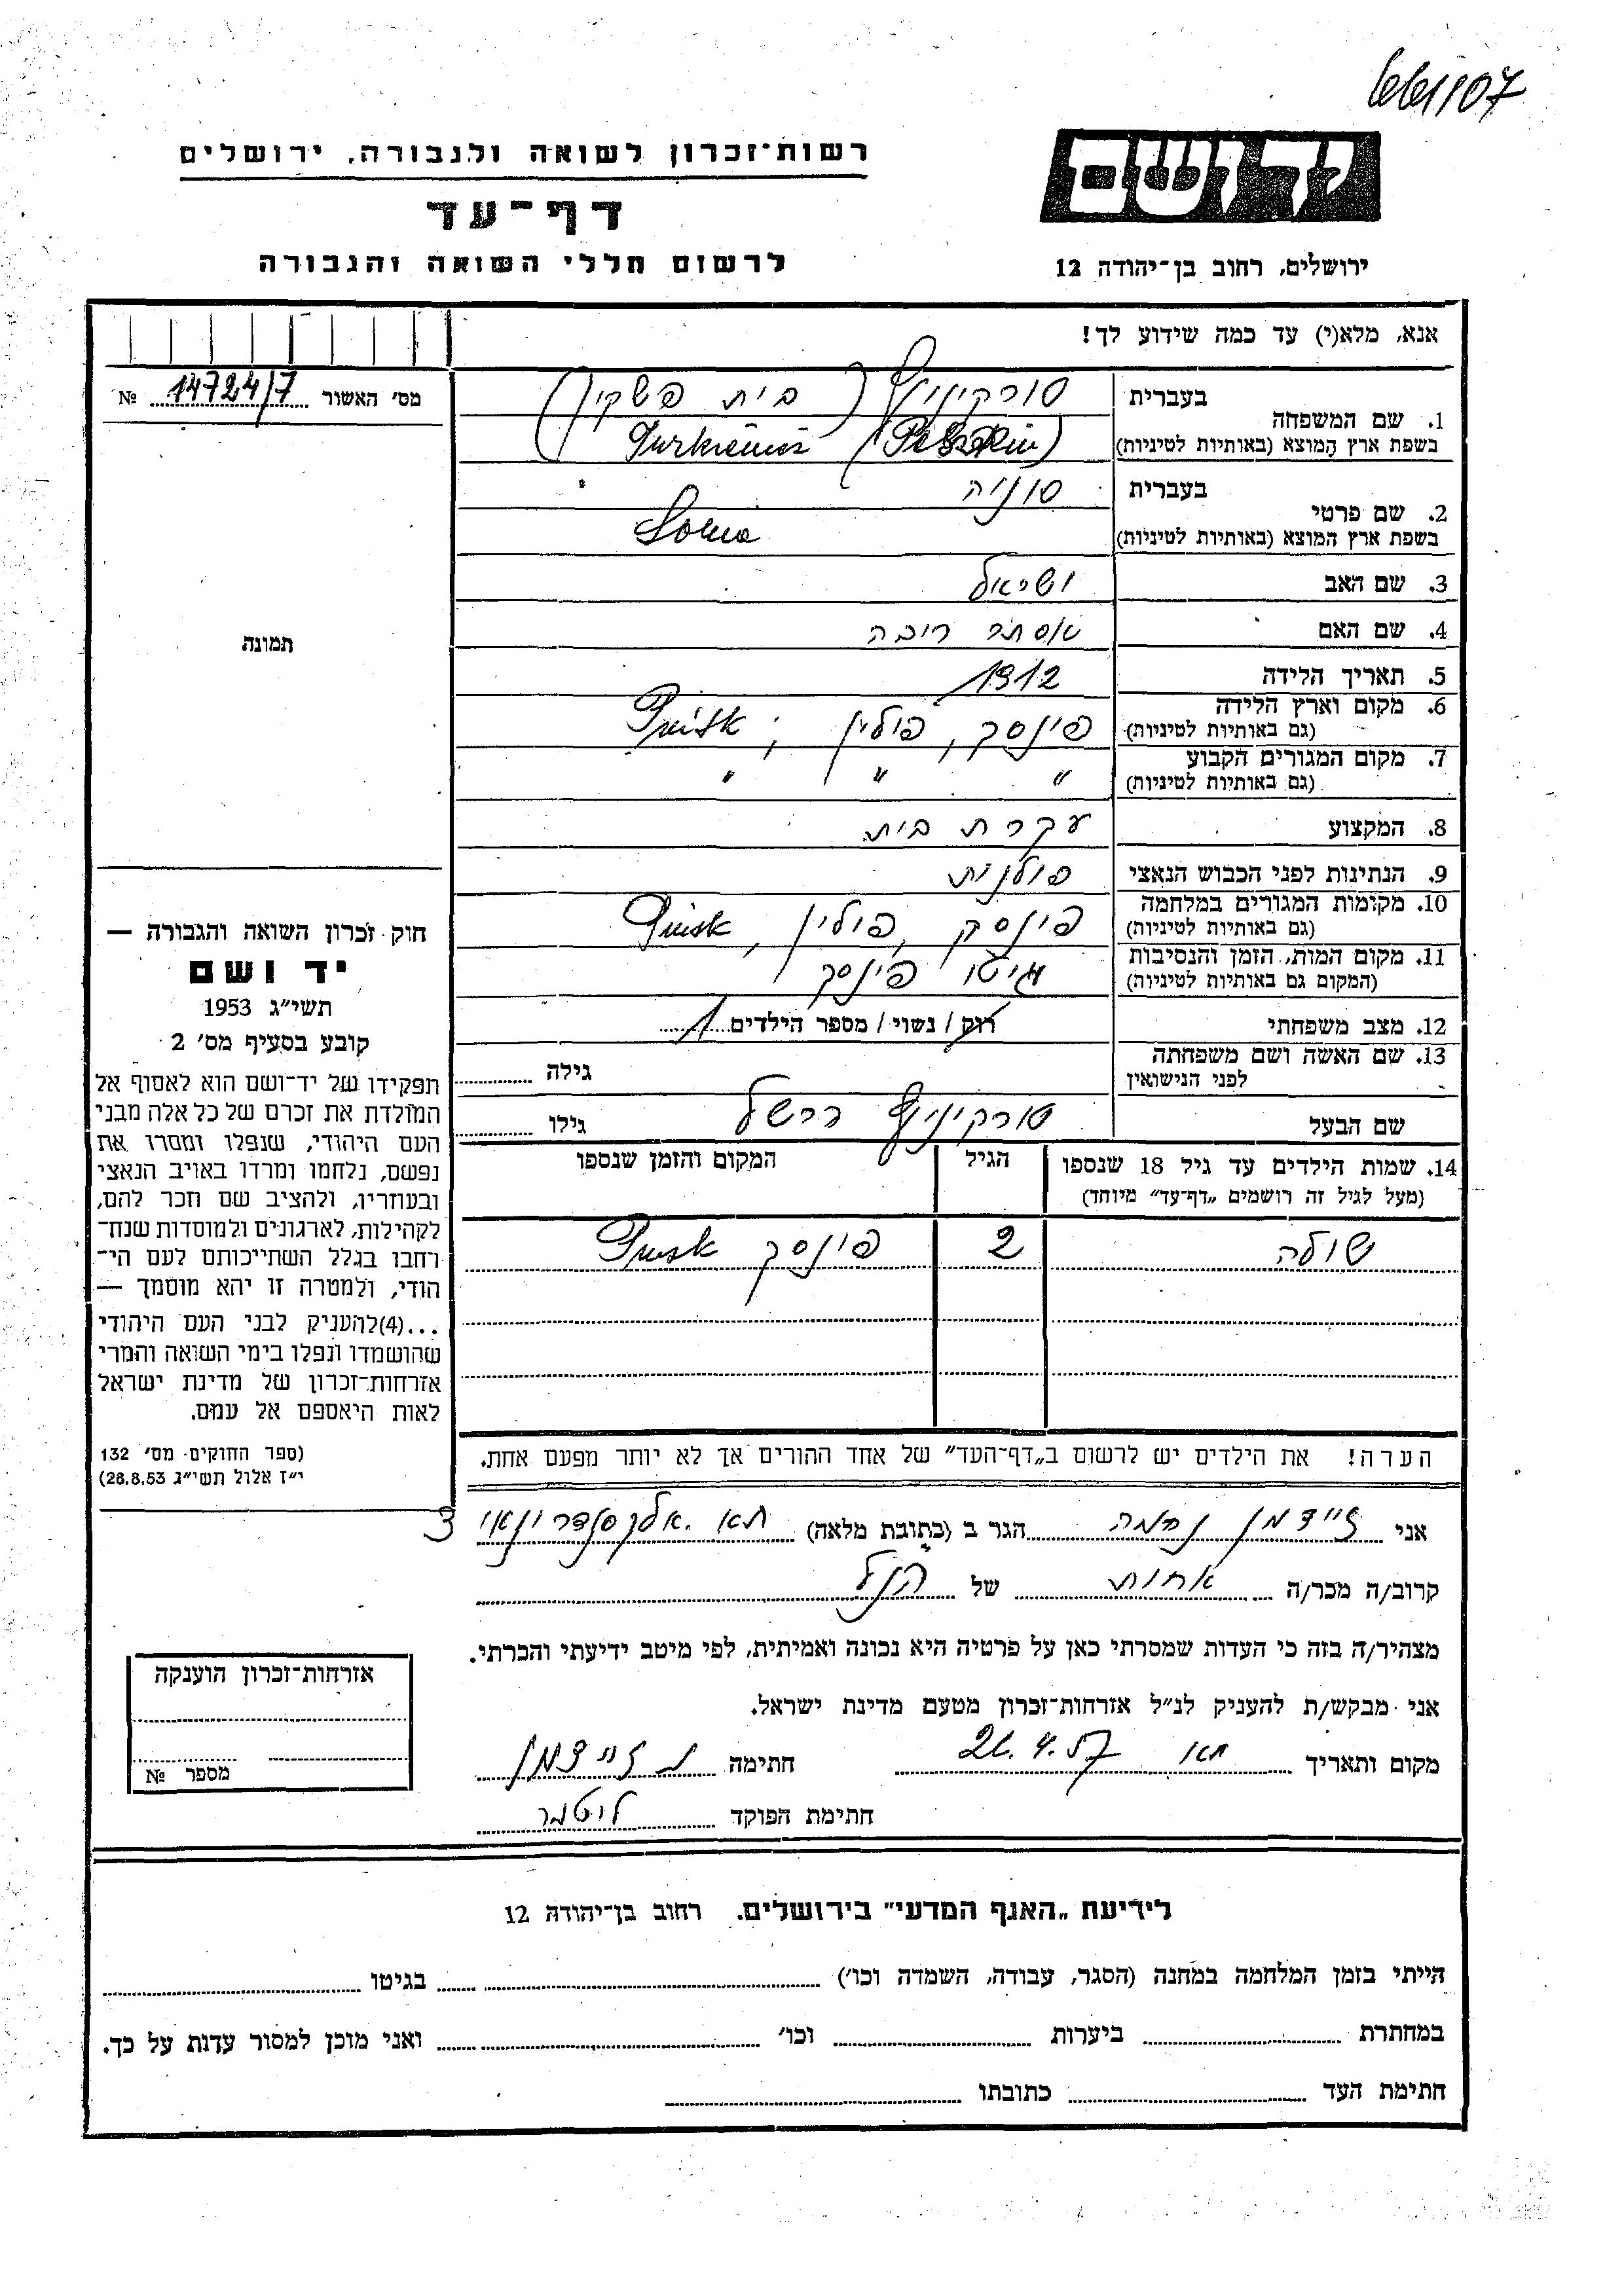 661107
יד ושם
ירושלים, רחוב בן־יהודה 12
רשות־זכרון לשואה ולגבורה, ירושלים
דף־עד
לרשום חללי השואה והגבורה
אנא, מלא(י) עד כמה שידוע לך!
מס' האשור 14724/7 №
תמונה
1. שם המשפחה
בעברית (בית פשקין)
בשפת ארץ המוצא (באותיות לטיניות)
2. שם פרטי
בעברית סוניה
בשפת ארץ המוצא (באותיות לטיניות) Sonia
3. שם האב
4. שם האם אסתר ריבה
5. תאריך הלידה 1912
6. מקום וארץ הלידה (גם באותיות לטיניות) פינסק, פולין ; Pinsk
7. מקום המגורים הקבוע (גם באותיות לטיניות) " " "
8. המקצוע עקרת בית
9. הנתינות לפני הכבוש הנאצי פולנית
10. מקומות המגורים במלחמה (גם באותיות לטיניות) פינסק, פולין, Pinsk
11. מקום המות, הזמן והנסיבות (המקום גם באותיות לטיניות) גיטו פינסק
12. מצב משפחתי רוק / נשוי / מספר הילדים 1
13. שם האשה ושם משפחתה לפני הנישואין גילה
שם הבעל הרשל גילו
14. שמות הילדים עד גיל 18 שנספו (מעל לגיל זה רושמים „דף־עד" מיוחד) הגיל המקום והזמן שנספו
שולה 2 פינסק Pinsk
הערה! את הילדים יש לרשום ב„דף־העד" של אחד ההורים אך לא יותר מפעם אחת.
חוק זכרון השואה והגבורה —
יד ושם
תשי"ג 1953
קובע בסעיף מס' 2
תפקידו של יד־ושם הוא לאסוף אל
המולדת את זכרם של כל אלה מבני
העם היהודי, שנפלו ומסרו את
נפשם, נלחמו ומרדו באויב הנאצי
ובעוזריו, ולהציב שם וזכר להם,
לקהילות, לארגונים ולמוסדות שנח־
רחבו בגלל השתייכותם לעם הי־
הודי, ולמטרה זו יהא מוסמך —
...(4)להעניק לבני העם היהודי
שהושמדו ונפלו בימי השואה והמרי
אזרחות־זכרון של מדינת ישראל
לאות היאספם אל עמם.
(ספר החוקים מס' 132
י"ז אלול תשי"ג 28.8.53)
אני זיידמן נחמה הגר ב (כתובת מלאה) תא. אלכסנדרוני 3
קרוב/ה מכר/ה אחות של הנ"ל
מצהיר/ה בזה כי העדות שמסרתי כאן על פרטיה היא נכונה ואמיתית, לפי מיטב ידיעתי והכרתי.
אני מבקש/ת להעניק לנ"ל אזרחות־זכרון מטעם מדינת ישראל.
מקום ותאריך תא 26.4.57 חתימה נ זיידמן
חתימת הפוקד
אזרחות־זכרון הוענקה
מספר №
לידיעת „האגף המדעי" בירושלים. רחוב בן־יהודה 12
הייתי בזמן המלחמה במחנה (הסגר, עבודה, השמדה וכו') בגיטו
במחתרת ביערות וכו' ואני מוכן למסור עדות על כך.
חתימת העד כתובתו